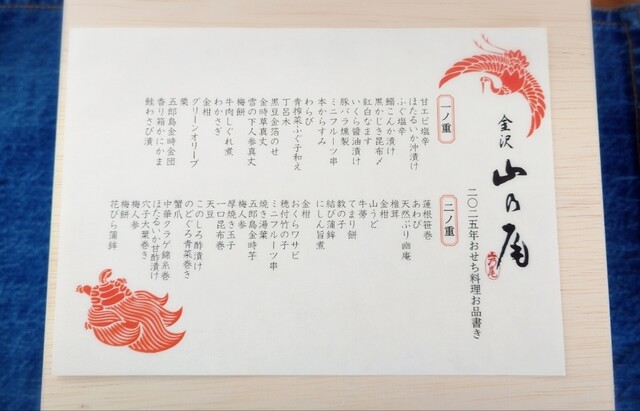 金沢 山乃尾
二〇二五年おせち料理お品書き
一ノ重
甘エビ塩辛
ほたるいか沖漬け
ふぐ塩辛
鰯こんか漬け
黒かじき昆布〆
紅白なます
いくら醤油漬け
豚バラ燻製
ミニフルーツ串
本からすみ
わらび
青搾菜ふぐ子和え
丁呂木
黒豆金箔のせ
金時草真丈
雪の下人参真丈
梅餅
牛肉しぐれ煮
わかさぎ
金柑
グリーンオリーブ
栗
五郎島金時金団
香り箱かにかま
鮭わさび漬
二ノ重
蓮根笹巻
あわび
天然ぶり幽庵
椎茸
金柑
山うど
牛蒡
てまり餅
数の子
結び蒲鉾
にしん旨煮
金柑
おくらワサビ
穂付竹の子
ミニフルーツ串
焼き湯葉
五郎島金時芋
梅人参
厚焼き玉子
一口昆布巻
天豆
このしろ酢漬け
のどぐろ青菜巻き
蟹爪
中華クラゲ錦糸巻
ほたるいか甘酢漬け
穴子大葉巻き
梅人参
梅餅
花びら蒲鉾